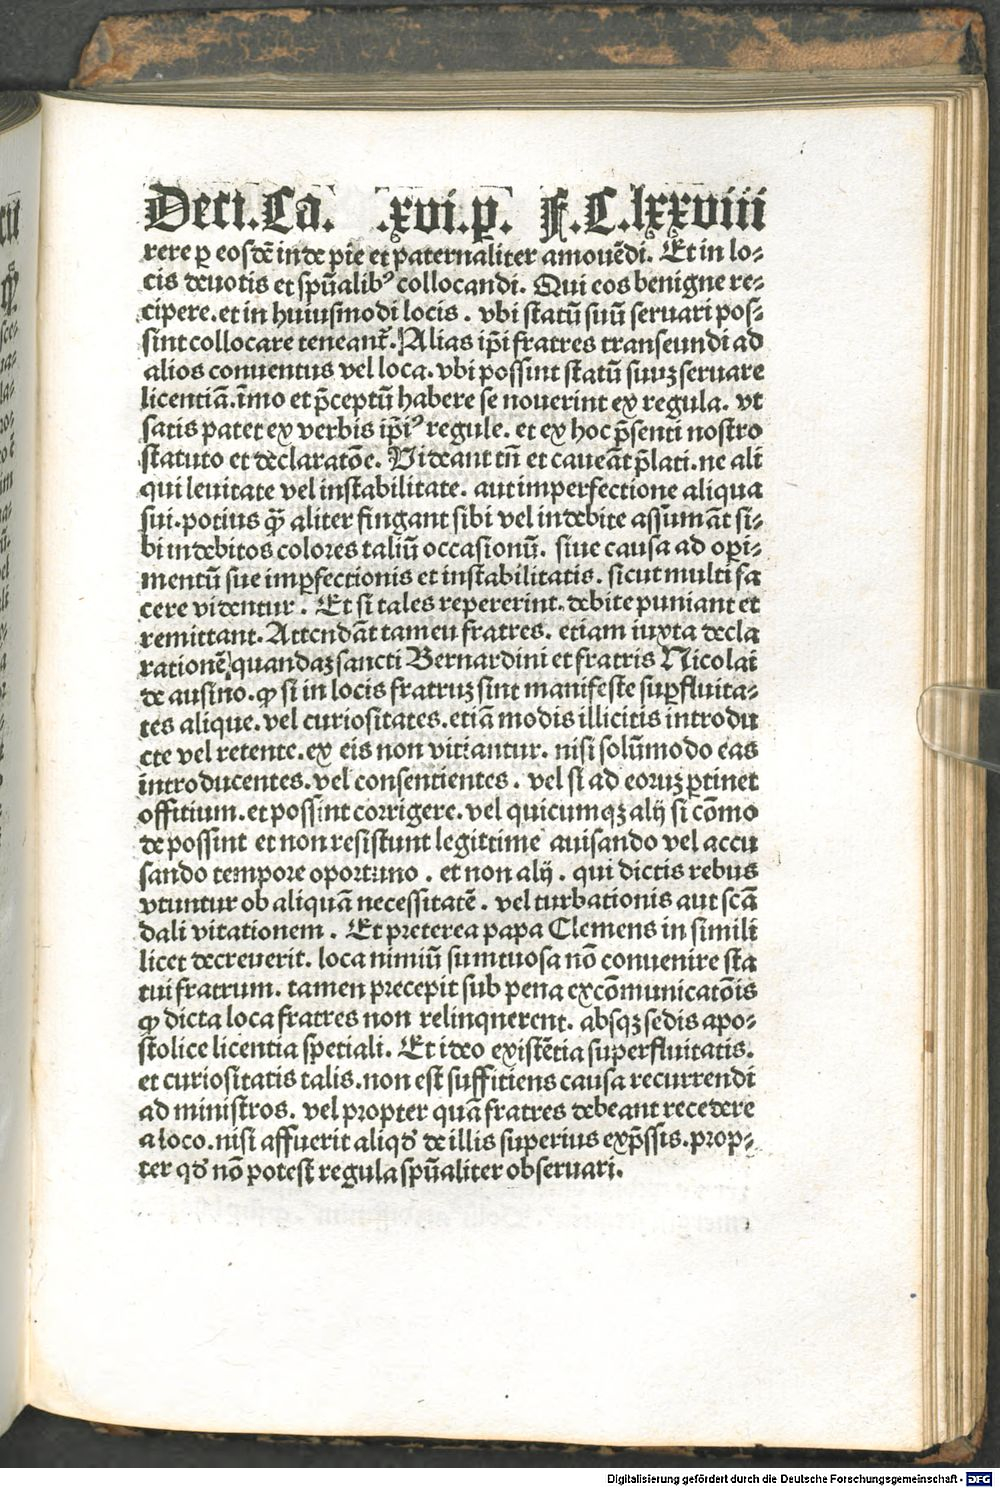 Deci.Ca. .xvi.p. F.C.lxxviii
rere ꝑ eosdē inde pie et paternaliter amouēdi. Et in lo⸗
cis deuotis et spūalibꝰ collocandi. Qui eos benigne re⸗
cipere.et in huiusmodi locis. vbi statū suū seruari pos⸗
sint collocare teneant̄. Alias ip̄i fratres transeundi ad
alios conuentus vel loca.vbi possint statū suuꝫ seruare
licentiā.īmo et p̄ceptū habere se nouerint ex regula. vt
satis patet ex verbis ip̄iꝰ regule. et ex hoc p̄senti nostro
statuto et declaratōe. Videant tn̄ et caueāt p̄lati.ne ali
qui leuitate vel instabilitate. aut imperfectione aliqua
sui.potius qꝫ̄ aliter fingant sibi vel indebite assumāt si⸗
bi indebitos colores taliū occasionū. siue causa ad oꝑi⸗
mentū sue imꝑfectionis et instabilitatis. sicut multi fa
cere videntur. Et si tales repererint.debite puniant et
remittant. Attendāt tameu fratres. etiam iuxta decla
rationē quandaꝫ sancti Bernardini et fratris Nicolai
de ausino.ꝙ si in locis fratruꝫ sint manifeste suꝑfluita⸗
tes alique.vel curiositates.etiā modis illicitis introdu
cte vel retente.ex eis non vitiantur. nisi solūmodo eas
introducentes.vel consentientes. vel si ad eoruꝫ ꝑtinet
offitium.et possint corrigere.vel quicumqꝫ alij si cōmo
de possint et non resistunt legittime auisando vel accu
sando tempore oportuno. et non alij. qui dictis rebus
vtuntur ob aliquā necessitatē. vel turbationis aut scā
dali vitationem. Et preterea papa Clemens in simili
licet decreuerit. loca nimiū sumtuosa nō conuenire sta
tui fratrum. tamen precepit sub pena excōmunicatōis
ꝙ dicta loca fratres non relinqnerent. absqꝫ sedis apo⸗
stolice licentia spetiali. Et ideo existētia superfluitatis.
et curiositatis talis.non est suffitiens causa recurrendi
ad ministros. vel propter quā fratres debeant recedere
a loco.nisi affuerit aliqđ de illis superius exp̄ssis.prop⸗
ter qđ nō potest regula spūaliter obseruari.
Digitalisierung gefördert durch die Deutsche Forschungsgemeinschaft - DFG